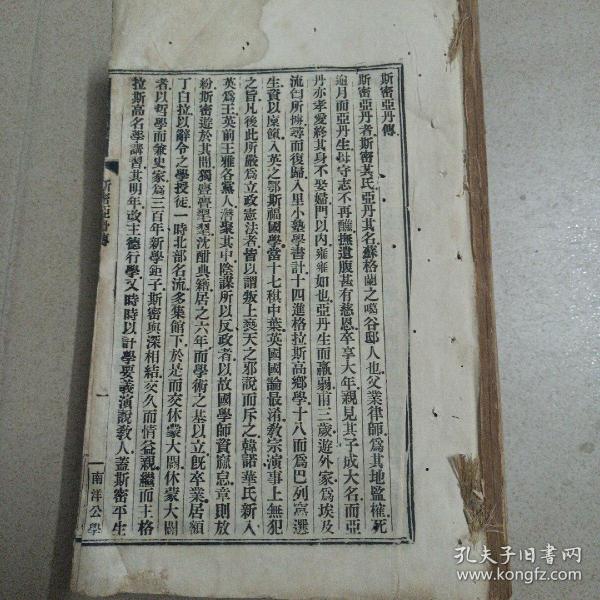 斯密亞丹傳
斯密亞丹者斯密其氏亞丹其名蘇格蘭之噶谷邸人也父業律師爲其地監榷死
逾月而亞丹生母守志不再醮撫遺腹甚有慈恩卒享大年親見其子成大名而亞
丹亦孝愛終其身不娶媍門以内雍雍如也亞丹生而羸弱甫三歲遊外家爲埃及
流匄所掠尋而復歸入里小塾學書計十四進格拉斯高鄉學十八而爲巴列窩選
生資以廩餼入英之鄂斯福國學當十七稘中葉英國國論最淆教宗演事上無犯
之旨凡後此所嚴爲立政憲法者皆以謂叛上褻天之邪說而斥之韓諾華氏新入
英爲王英前王雅各黨人潛聚其中陰謀所以反政者以故國學師資窳怠章則放
紛斯密遊於其間獨亹亹㲄㲄沈酣典籍居之六年而學術之基以立旣卒業居額
丁白拉以辭令之學授徒一時北部名流多集館下於是而交休蒙大闢休蒙大闢
者以哲學而兼史家爲三百年新學鉅子斯密與深相結交久而情益親繼而主格
拉斯高名學講習其明年改主德行學又時時以計學要義演說教人蓋斯密平生
斯密亞丹傳
一
南洋公學
孔夫子旧書网
www.kongfz.com